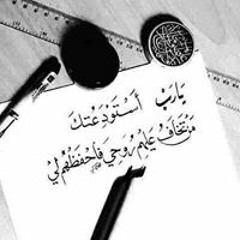 يَارَبْ أَسْتَوْدِعْتُكَ
مَنْ تَخَافُ عَلَيْهِمْ رُوحِي فَاحْفَظْهُمْ لِي